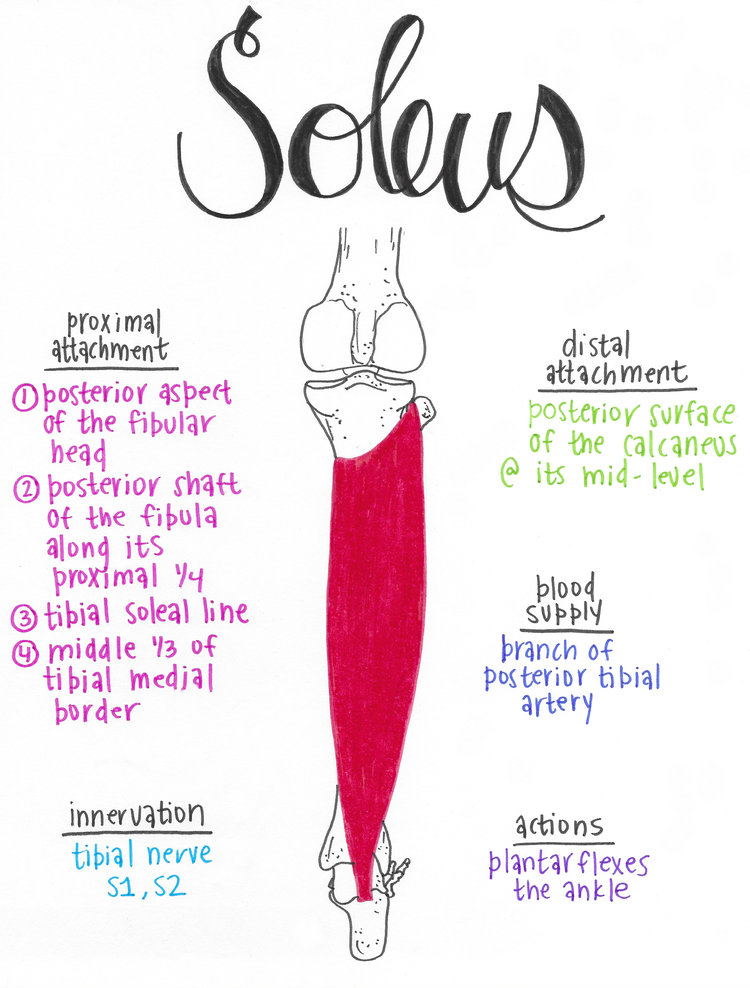 Soleus
proximal
attachment
① posterior aspect
of the fibular
head
② posterior shaft
of the fibula
along its
proximal 1/4
③ tibial soleal line
④ middle 1/3 of
tibial medial
border
innervation
tibial nerve
S1, S2
distal
attachment
posterior surface
of the calcaneus
@ its mid-level
blood
supply
branch of
posterior tibial
artery
actions
plantarflexes
the ankle